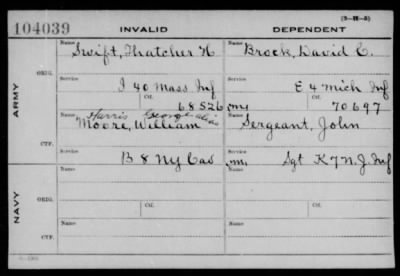 (3-III-3)
104039 INVALID DEPENDENT
Name Name
Swift, Thatcher H Brock, David C.
ORIG.
Service Service
I 40 Mass Inf E 4 Mich Inf
Ctf. Ctf.
68526 my 70697
ARMY
Name Name
Harris George alias
Moore, William Sergeant, John
CTF.
Service Service
B 8 NY Cav m, Sgt K 7 N.J. Inf
Name Name
ORIG.
Ctf. Ctf.
NAVY
Name Name
CTF.